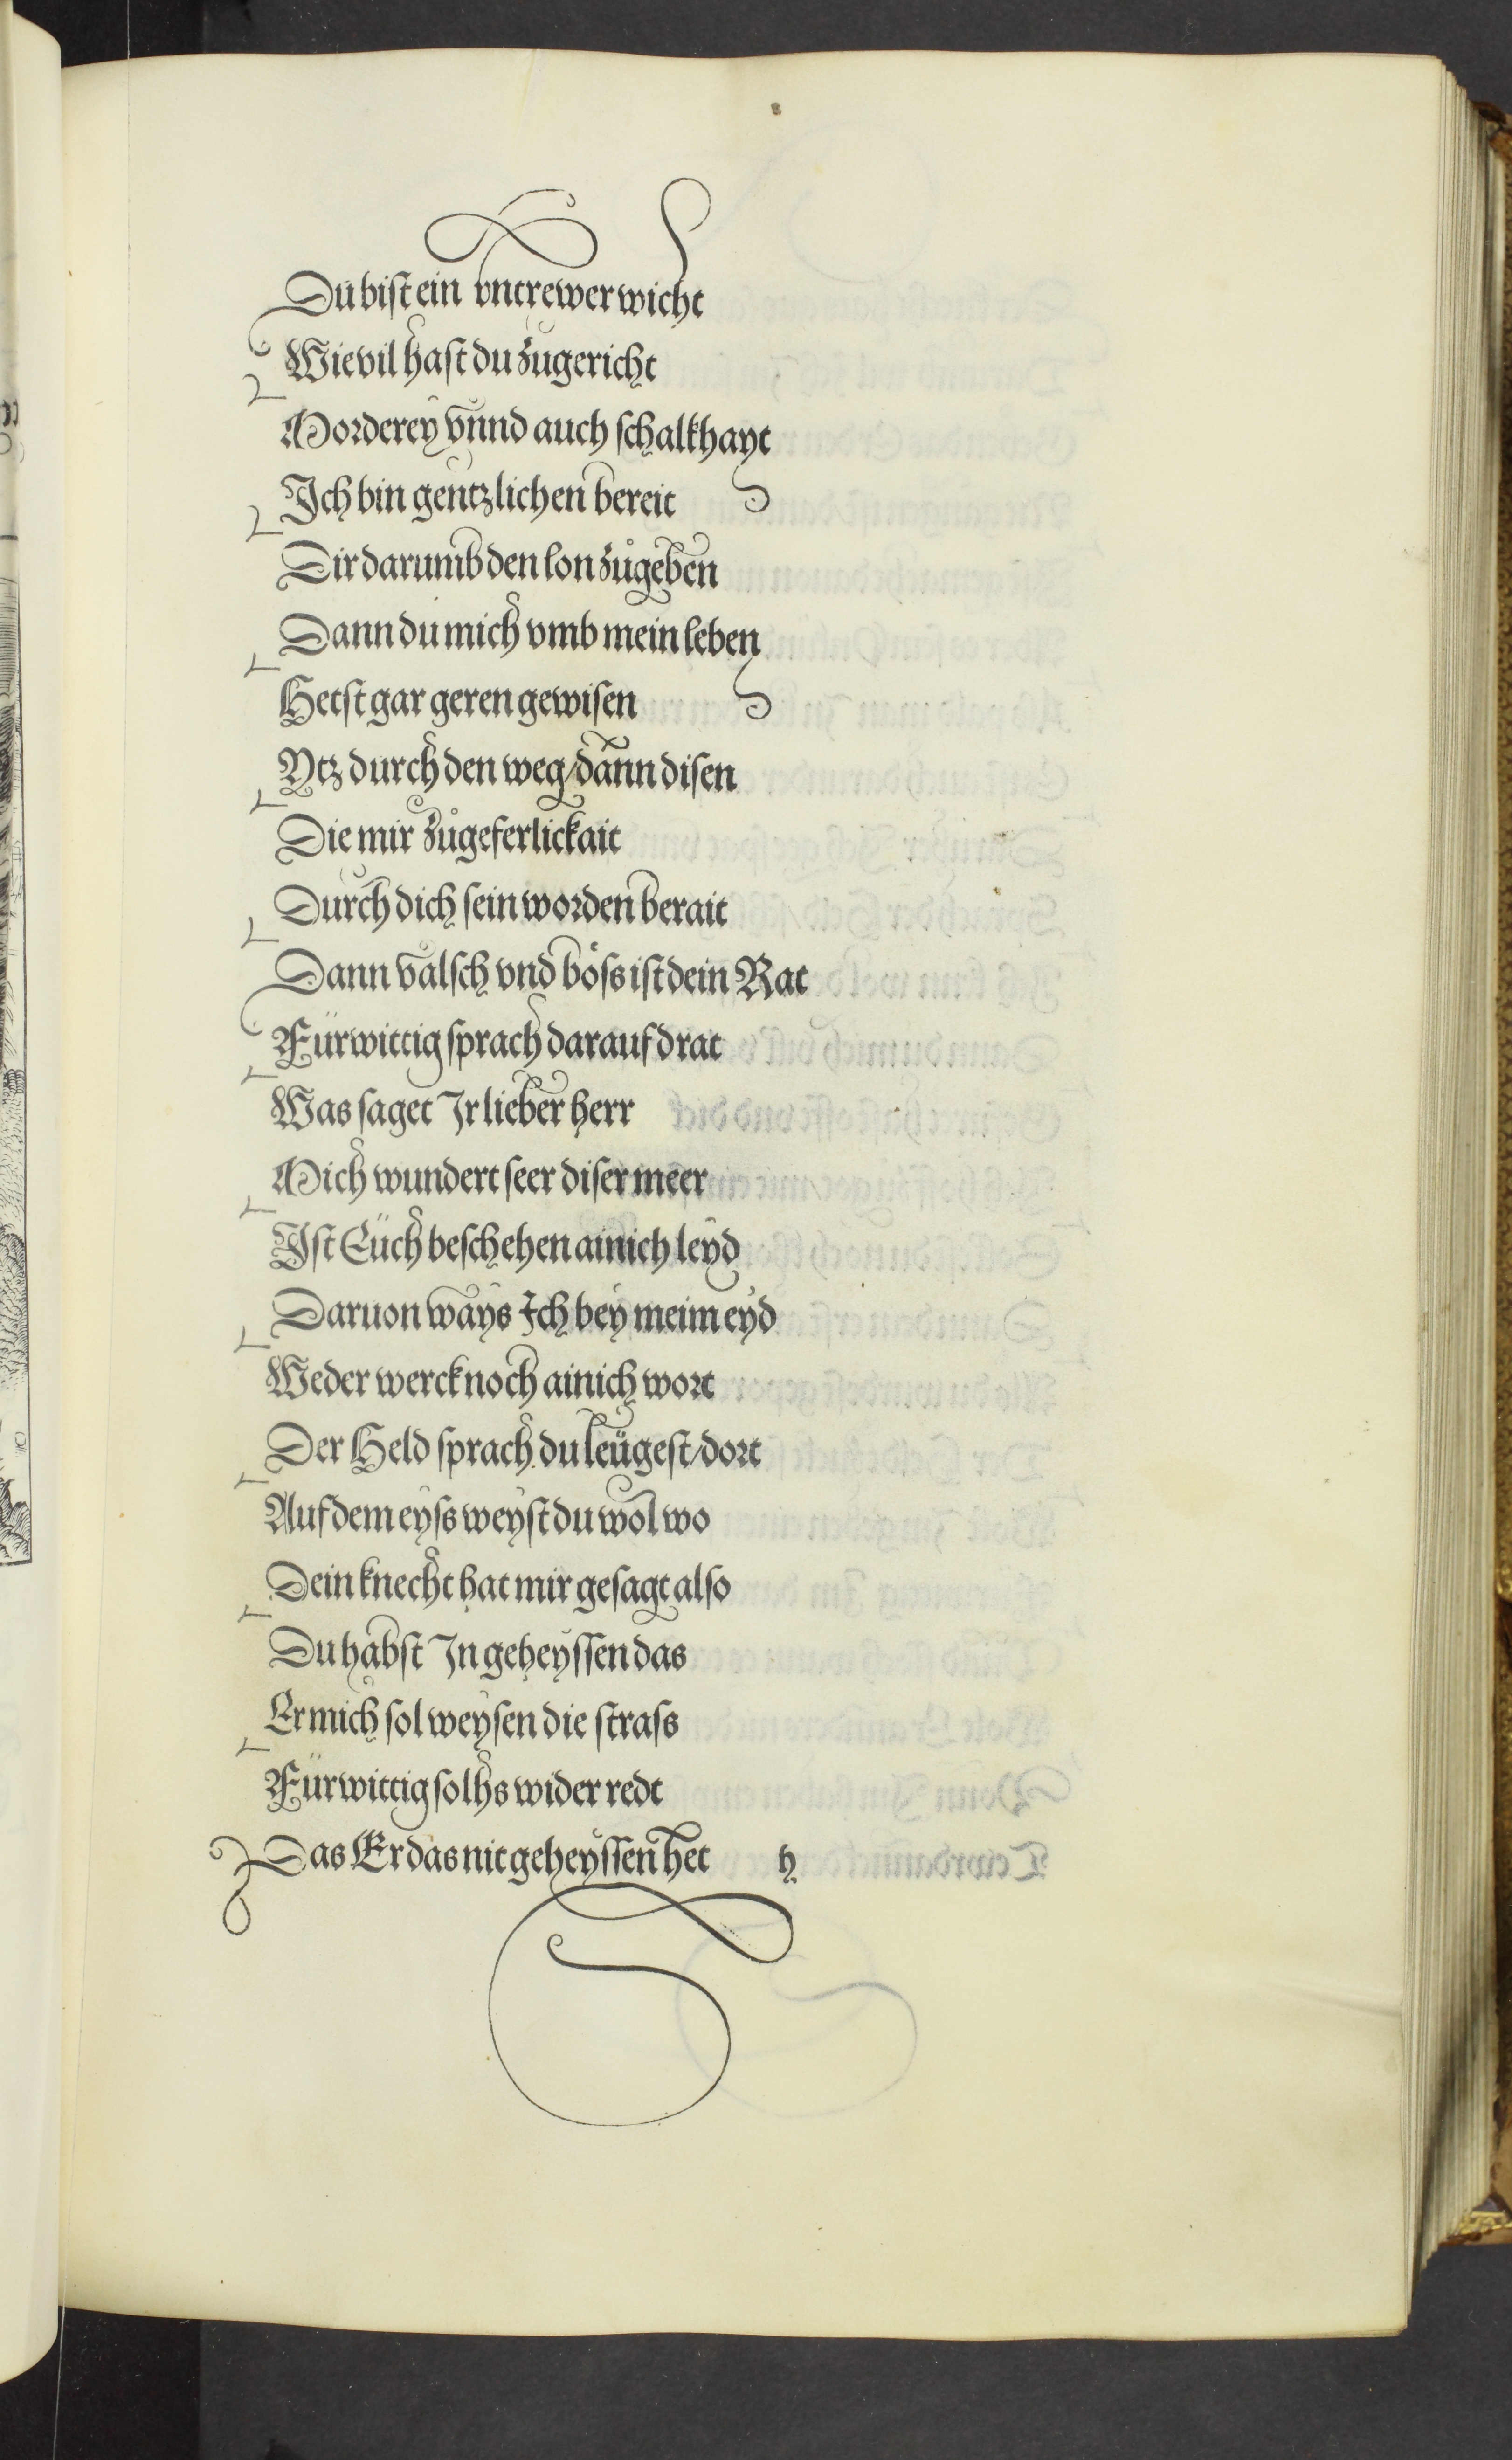 Du bist ein vntrewer wicht
Wie vil hast du zugericht
Morderey vnnd auch schalkhayt
Ich bin gentzlichen bereit
Dir darumb den lon zůgeben
Dann du mich vmb mein leben
Hetst gar geren gewisen
Ytz durch den weg/dann disen
Die mir zůgeferlickait
Durch dich sein worden berait
Dann valsch vnd böss ist dein Rat
Fürwittig sprach darauf drat
Was saget Ir lieber herr
Mich wundert seer diser meer
Ist Eüch beschehen ainich leyd
Daruon ways Ich bey meim eyd
Weder werck noch ainich wort
Der Held sprach du leügest/dort
Auf dem eyss weyst du wol wo
Dein knecht hat mir gesagt also
Du habst In geheyssen das
Er mich sol weysen die strass
Fürwittig solhs widerredt
Das Er das nit geheyssen het h